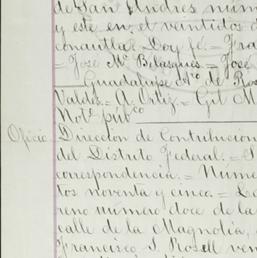 de San Andrés núm
y este en el veintidos d
Doy fé. = Fra
= José Mª Belasques = José
Guadalupe Aº de Ros
Valdes = A. Ortiz = Gil M
Notº pubco
Oficio Direccion de Contribucion
del Distrito Federal. = S
correspondencia. = Nume
tos noventa y cinco = Le
reno número doce de la
calle de la Magnolia, a
Francisco S. Rosell ven